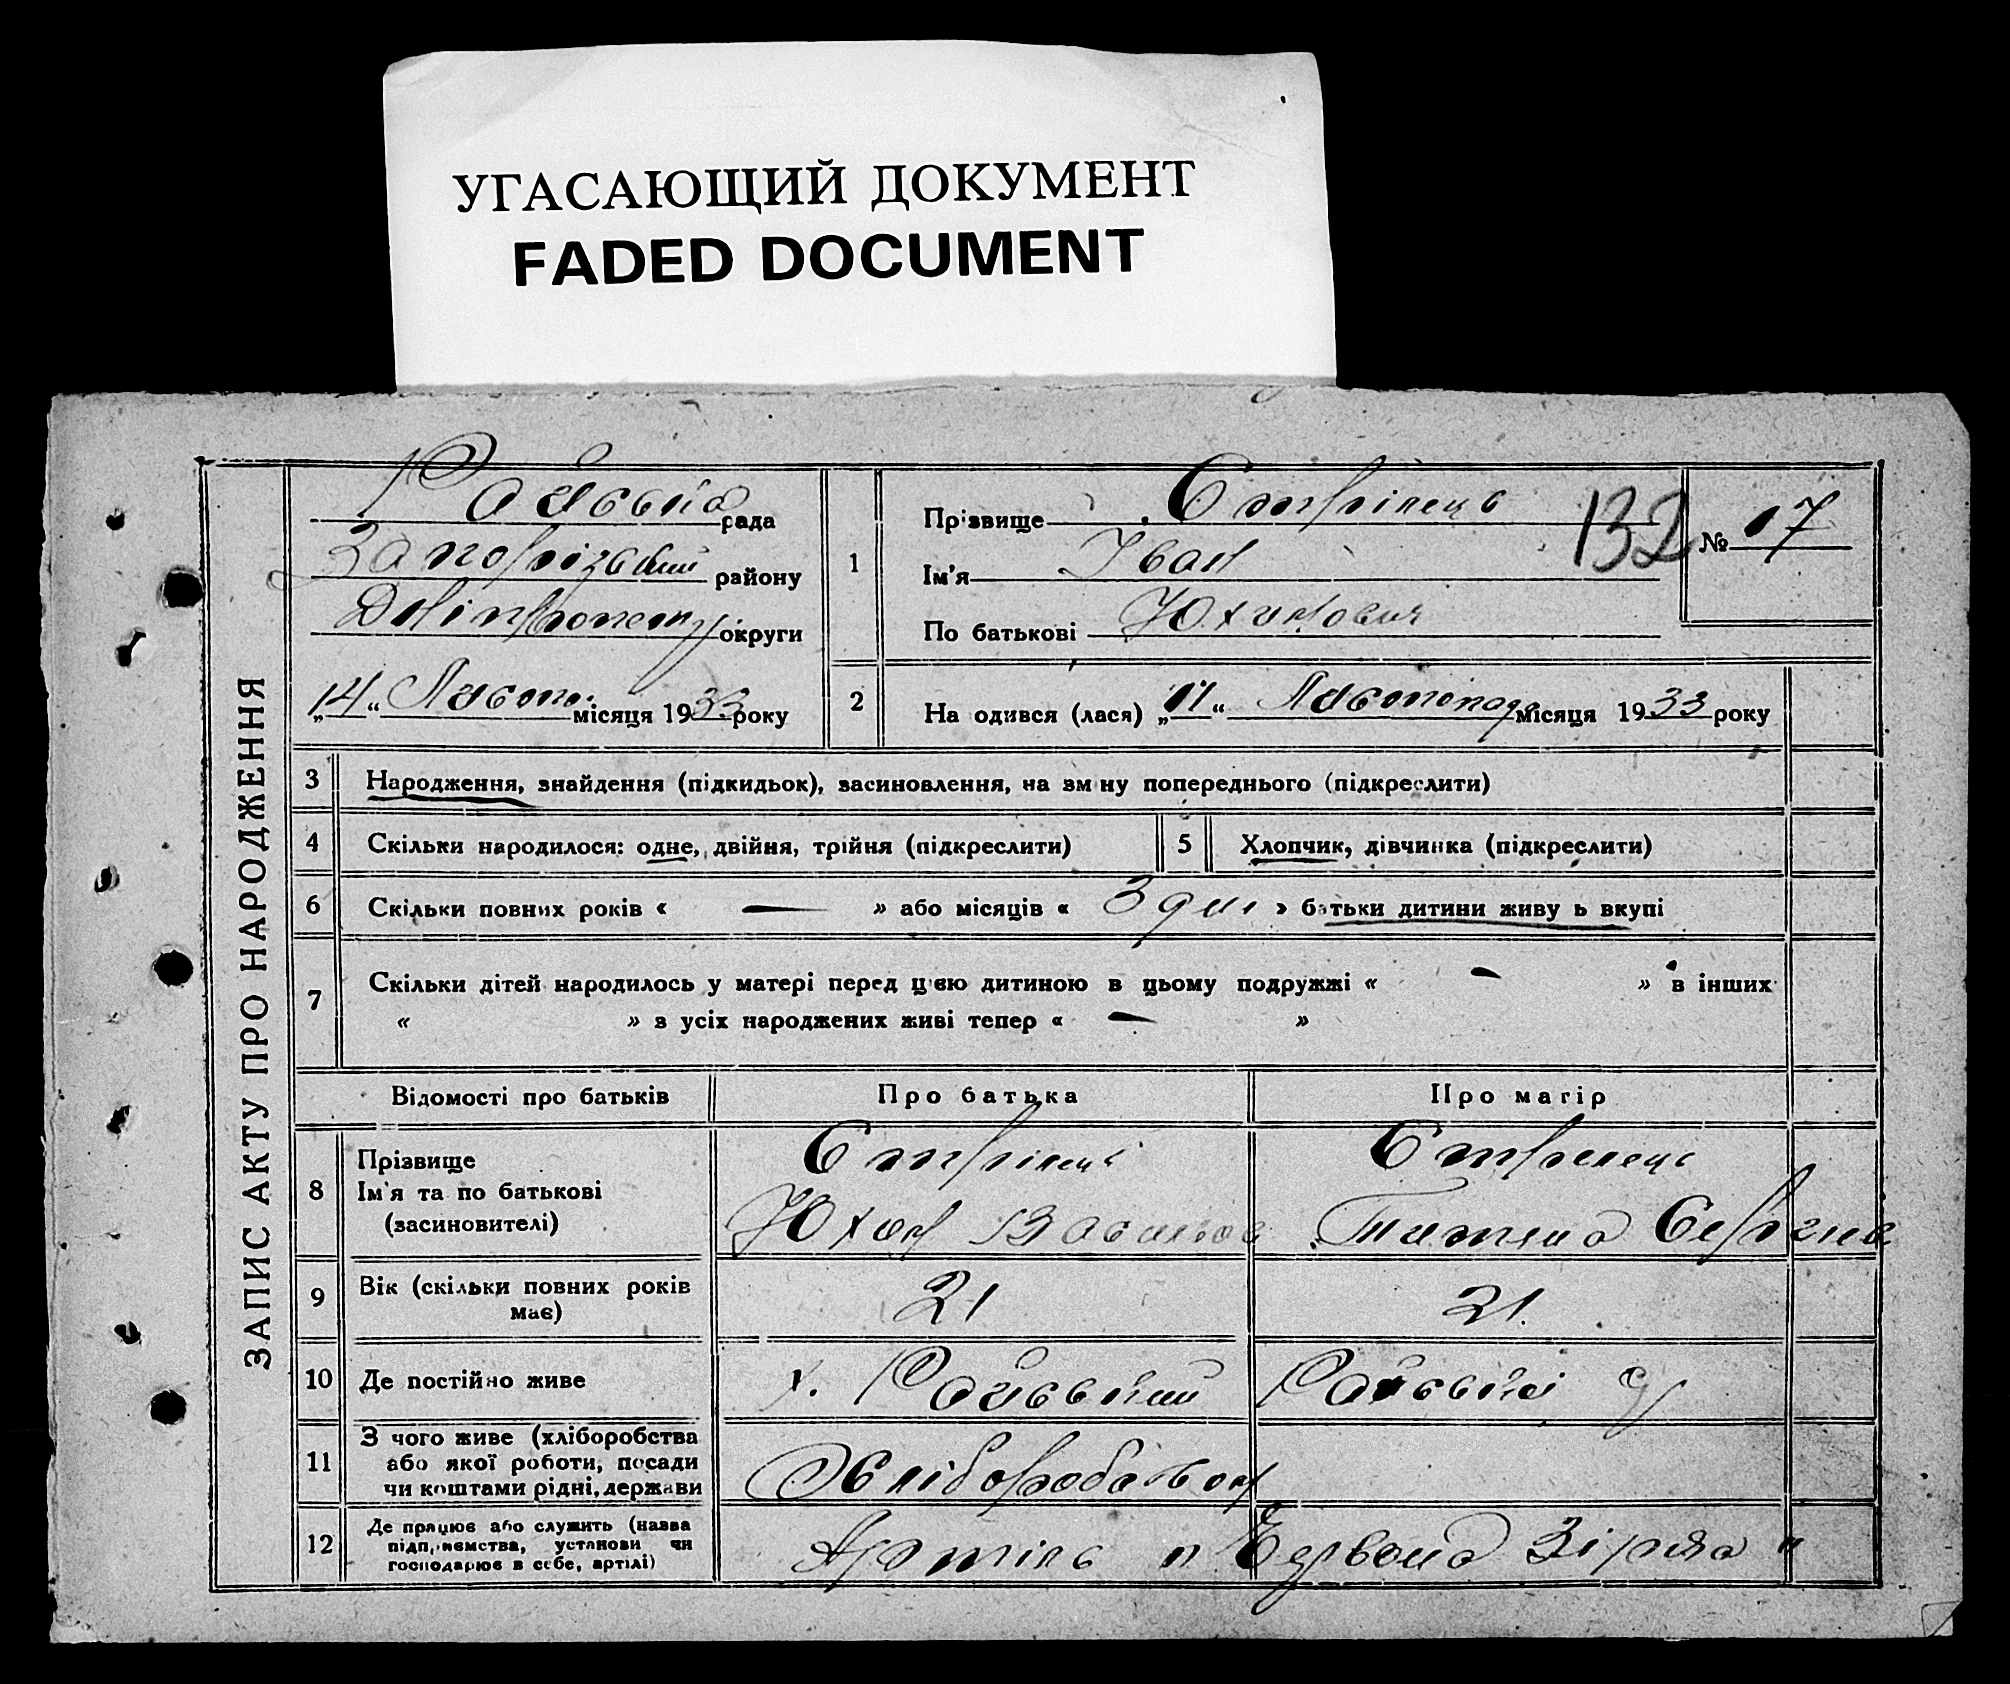 УГАСАЮЩИЙ ДОКУМЕНТ
FADED DOCUMENT
ЗАПИС АКТУ ПРО НАРОДЖЕННЯ
Райська рада
Запорізький району
Дніпропет округи
„14“ Листоп. місяця 1933 року
1
Прізвище Стрілець
132
№ 17
Ім'я Іван
По батькові Юхимович
2
На одився (лася) „11“ Листопада місяця 1933 року
3 Народження, знайдення (підкидьок), засиновлення, на зм ну попереднього (підкреслити)
4 Скільки народилося: одне, двійня, трійня (підкреслити)
5 Хлопчик, дівчинка (підкреслити)
6 Скільки повних років « — » або місяців « 3 дні » батьки дитини живу ь вкупі
7 Скільки дітей народилось у матері перед цією дитиною в цьому подружжі « - » в інших
« » з усіх народжених живі тепер « — »
Відомості про батьків
Про батька
Про матір
8 Прізвище
Ім'я та по батькові
(засиновителі)
Стрілець
Юхим Васильов
Стрелець
Титяна Сергеив
9 Вік (скільки повних років має)
21
21.
10 Де постійно живе
х. Райський
Райські
11 З чого живе (хліборобства
або якої роботи, посади
чи коштами рідні, держави
Хліборобством
12 Де працює або служить (назва
підприємства, установи чи
господарює в себе, артілі)
Артіль „ Червона Зірка "